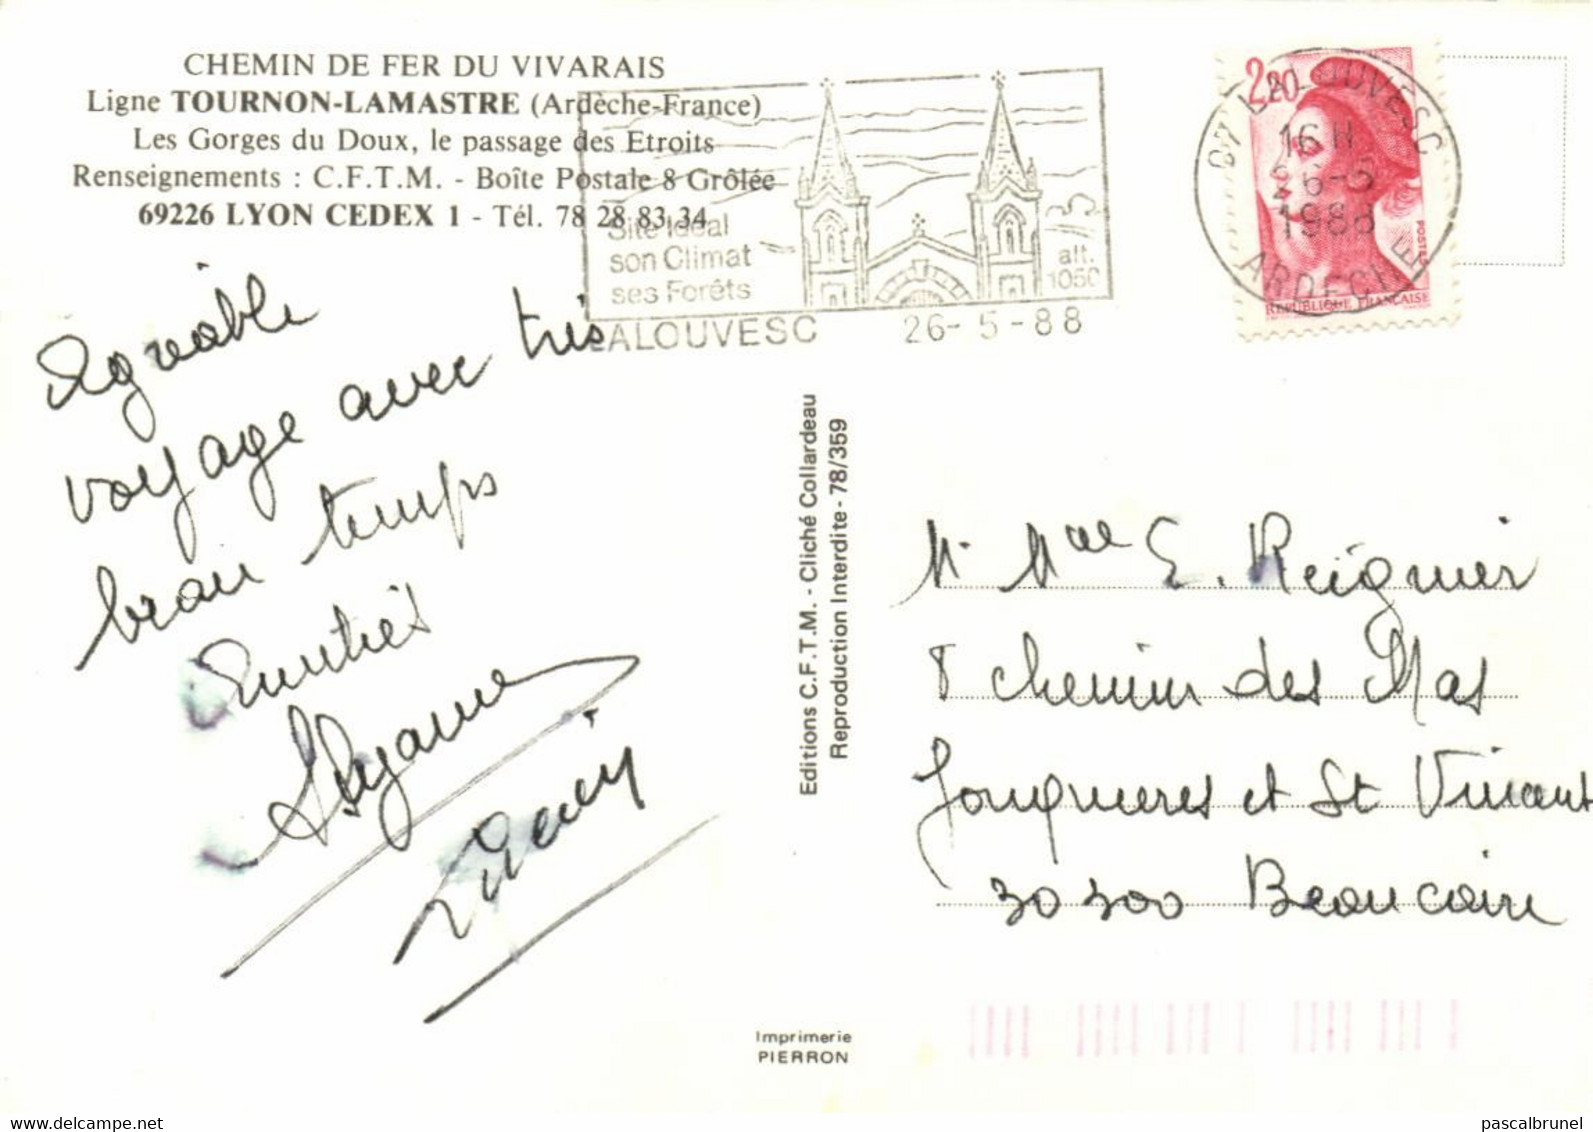 CHEMIN DE FER DU VIVARAIS
Ligne TOURNON-LAMASTRE (Ardèche-France)
Les Gorges du Doux, le passage des Etroits
Renseignements : C.F.T.M. - Boîte Postale 8 Grôlée
69226 LYON CEDEX 1 - Tél. 78 28 83 34
Site Idéal
son Climat
ses Forêts
alt.
1050
LALOUVESC 26-5-88
2,20
07 LALOUVESC
16 H
26-5
1988
ARDECHE
POSTES
REPUBLIQUE FRANÇAISE
Agréable
voyage avec très
beau temps
Amitiés
Editions C.F.T.M. - Cliché Collardeau
Reproduction Interdite - 78/359
M. Mme E. Reignier
8 chemin des Mas
Jonquieres et St Vincent
30300 Beaucaire
Imprimerie
PIERRON
pascalbrunel